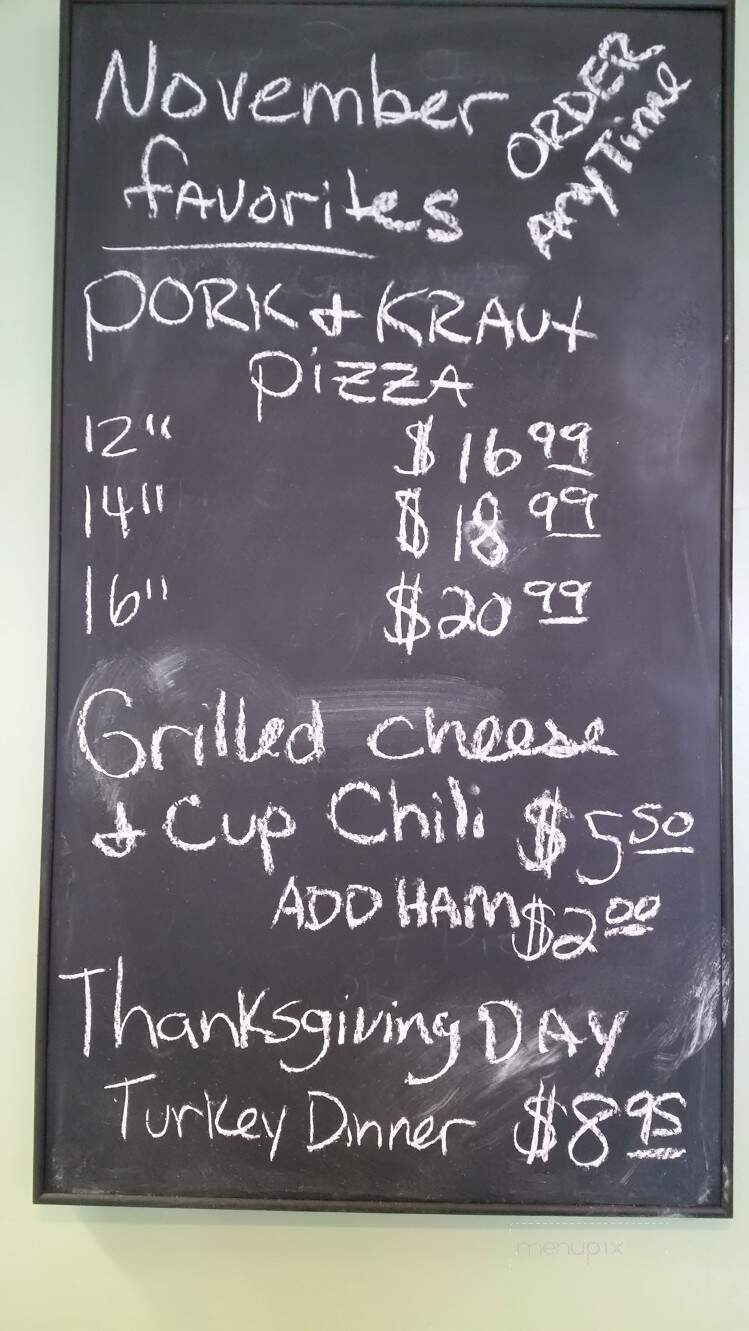 November
favorites
ORDER
Any Time
PORK & KRAUT
PIZZA
12" $16 99
14" $18 99
16" $20 99
Grilled cheese
& Cup Chili $5 50
ADD HAM $2 00
Thanksgiving DAY
Turkey Dinner $8 95
menupix